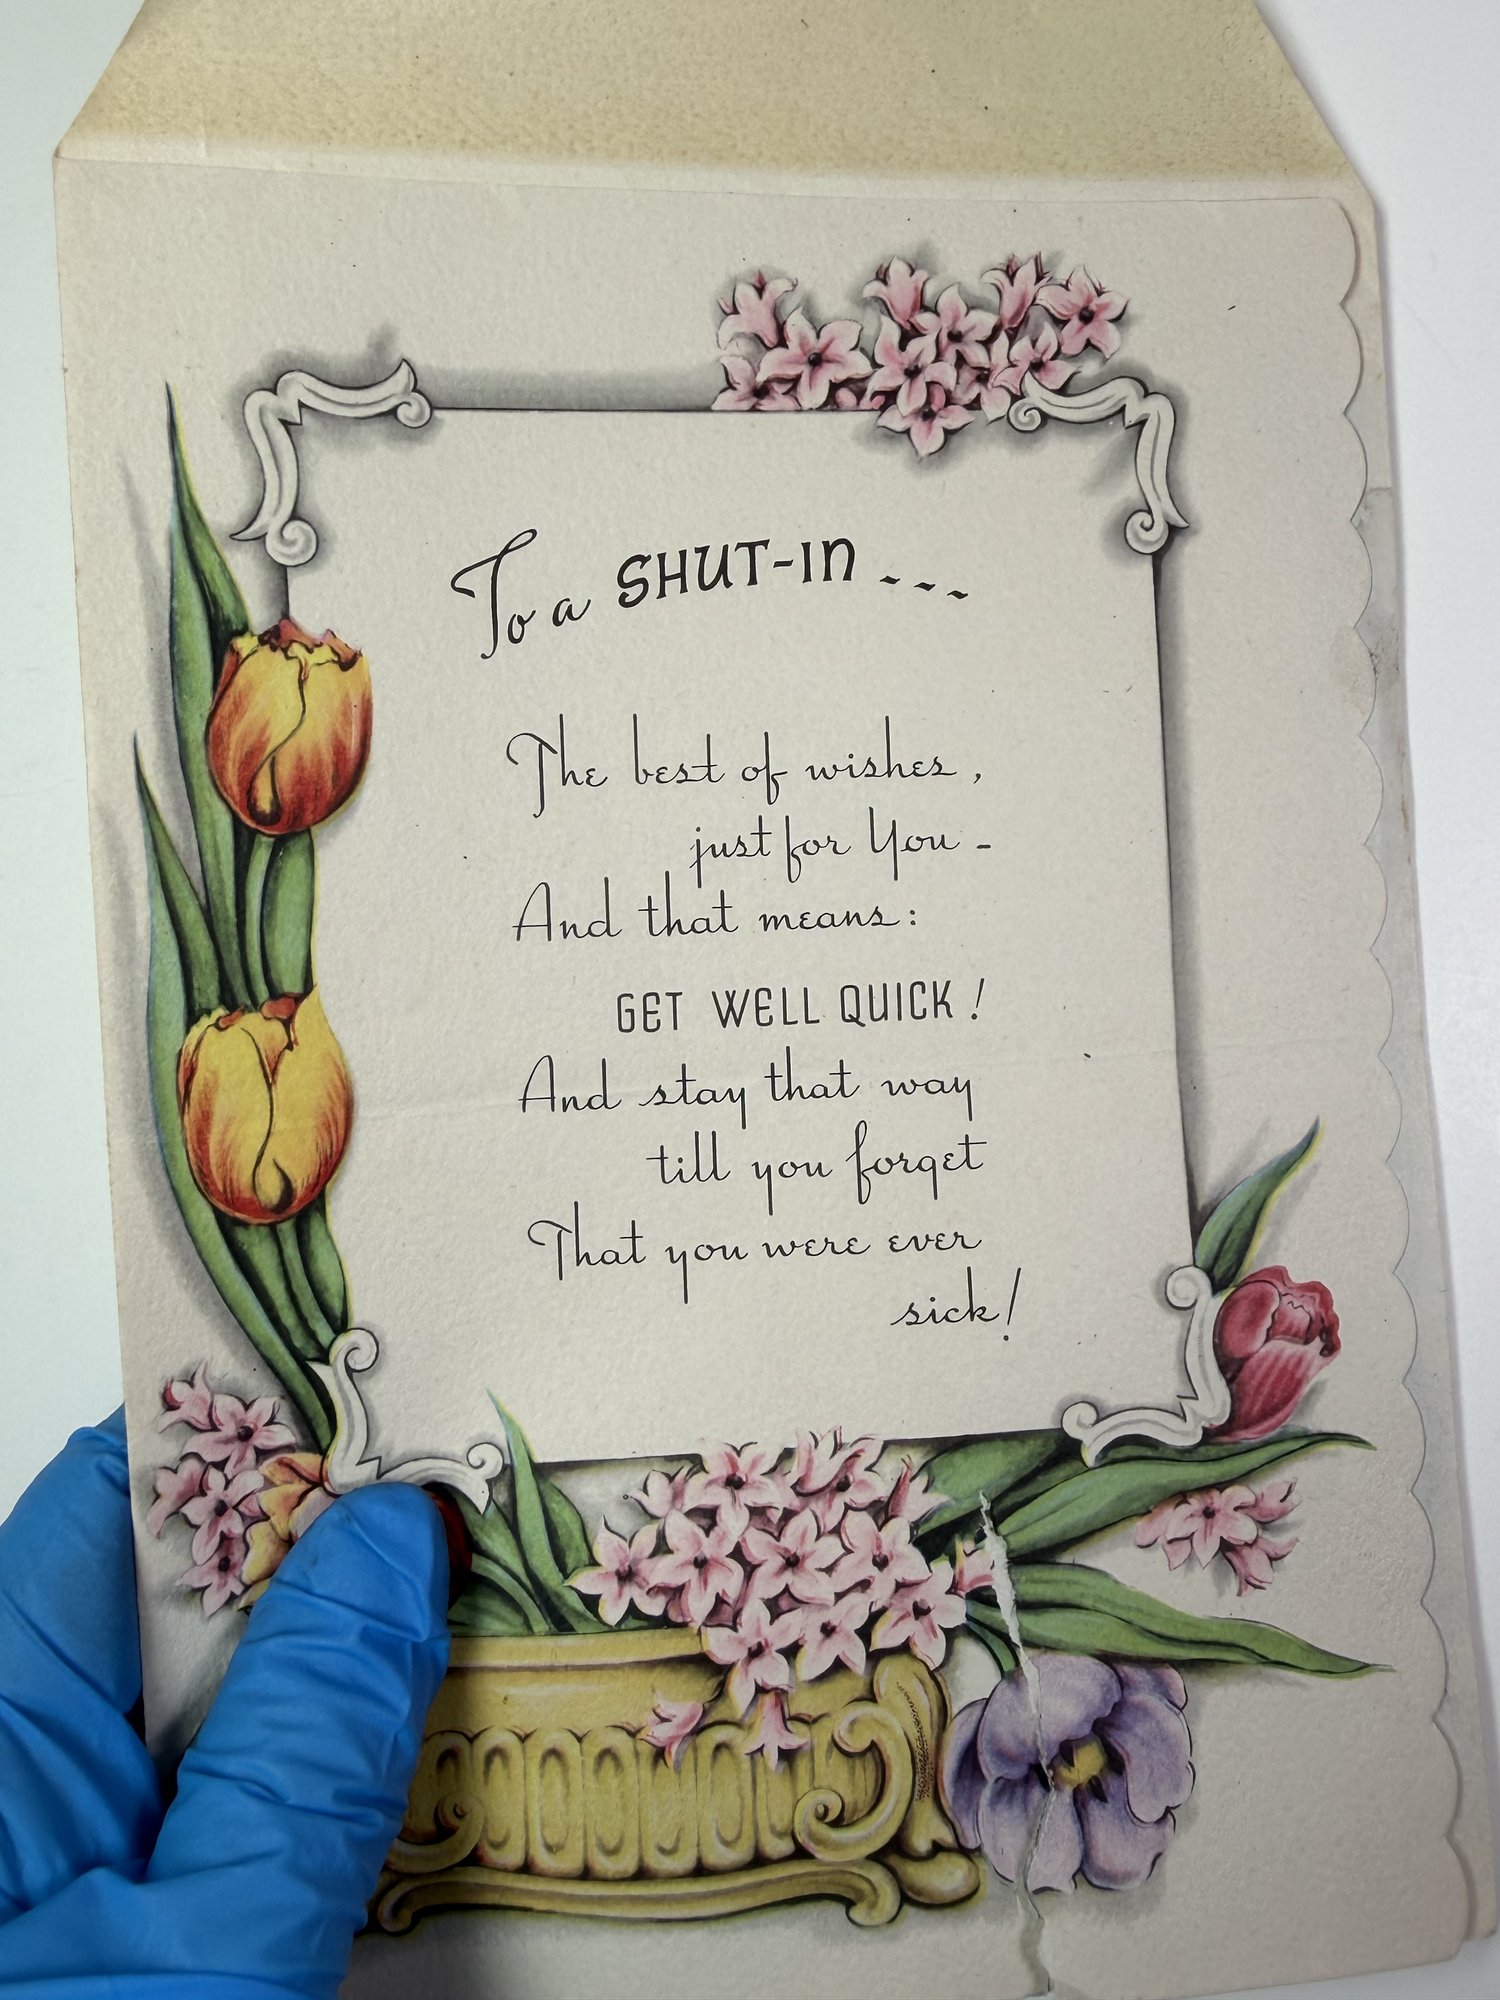 To a SHUT-IN ---
The best of wishes,
just for You -
And that means:
GET WELL QUICK!
And stay that way
till you forget
That you were ever
sick!